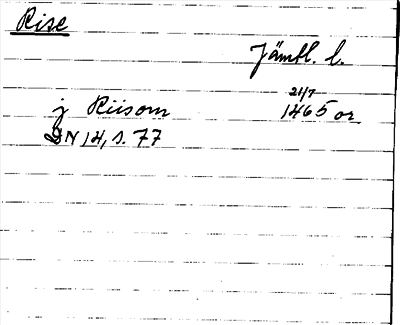 Rise
Jämtl. l.
21/7
j Riisom 1465 or
DN 14, s. 77